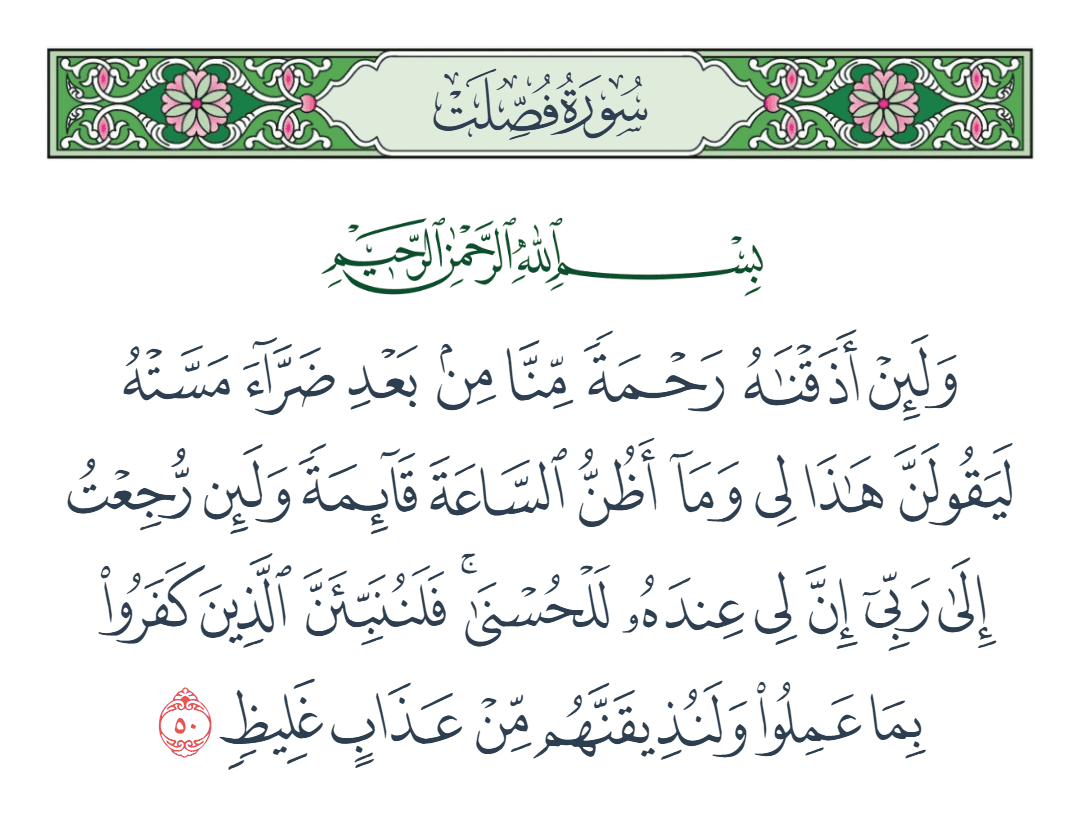 سُورَةُ فُصِّلَتْ
بِسْمِ ٱللَّهِ ٱلرَّحْمَٰنِ ٱلرَّحِيمِ
وَلَئِنْ أَذَقْنَٰهُ رَحْمَةً مِّنَّا مِنۢ بَعْدِ ضَرَّآءَ مَسَّتْهُ
لَيَقُولَنَّ هَٰذَا لِى وَمَآ أَظُنُّ ٱلسَّاعَةَ قَآئِمَةً وَلَئِن رُّجِعْتُ
إِلَىٰ رَبِّىٓ إِنَّ لِى عِندَهُۥ لَلْحُسْنَىٰ ۚ فَلَنُنَبِّئَنَّ ٱلَّذِينَ كَفَرُوا۟
بِمَا عَمِلُوا۟ وَلَنُذِيقَنَّهُم مِّنْ عَذَابٍ غَلِيظٍ ٥٠